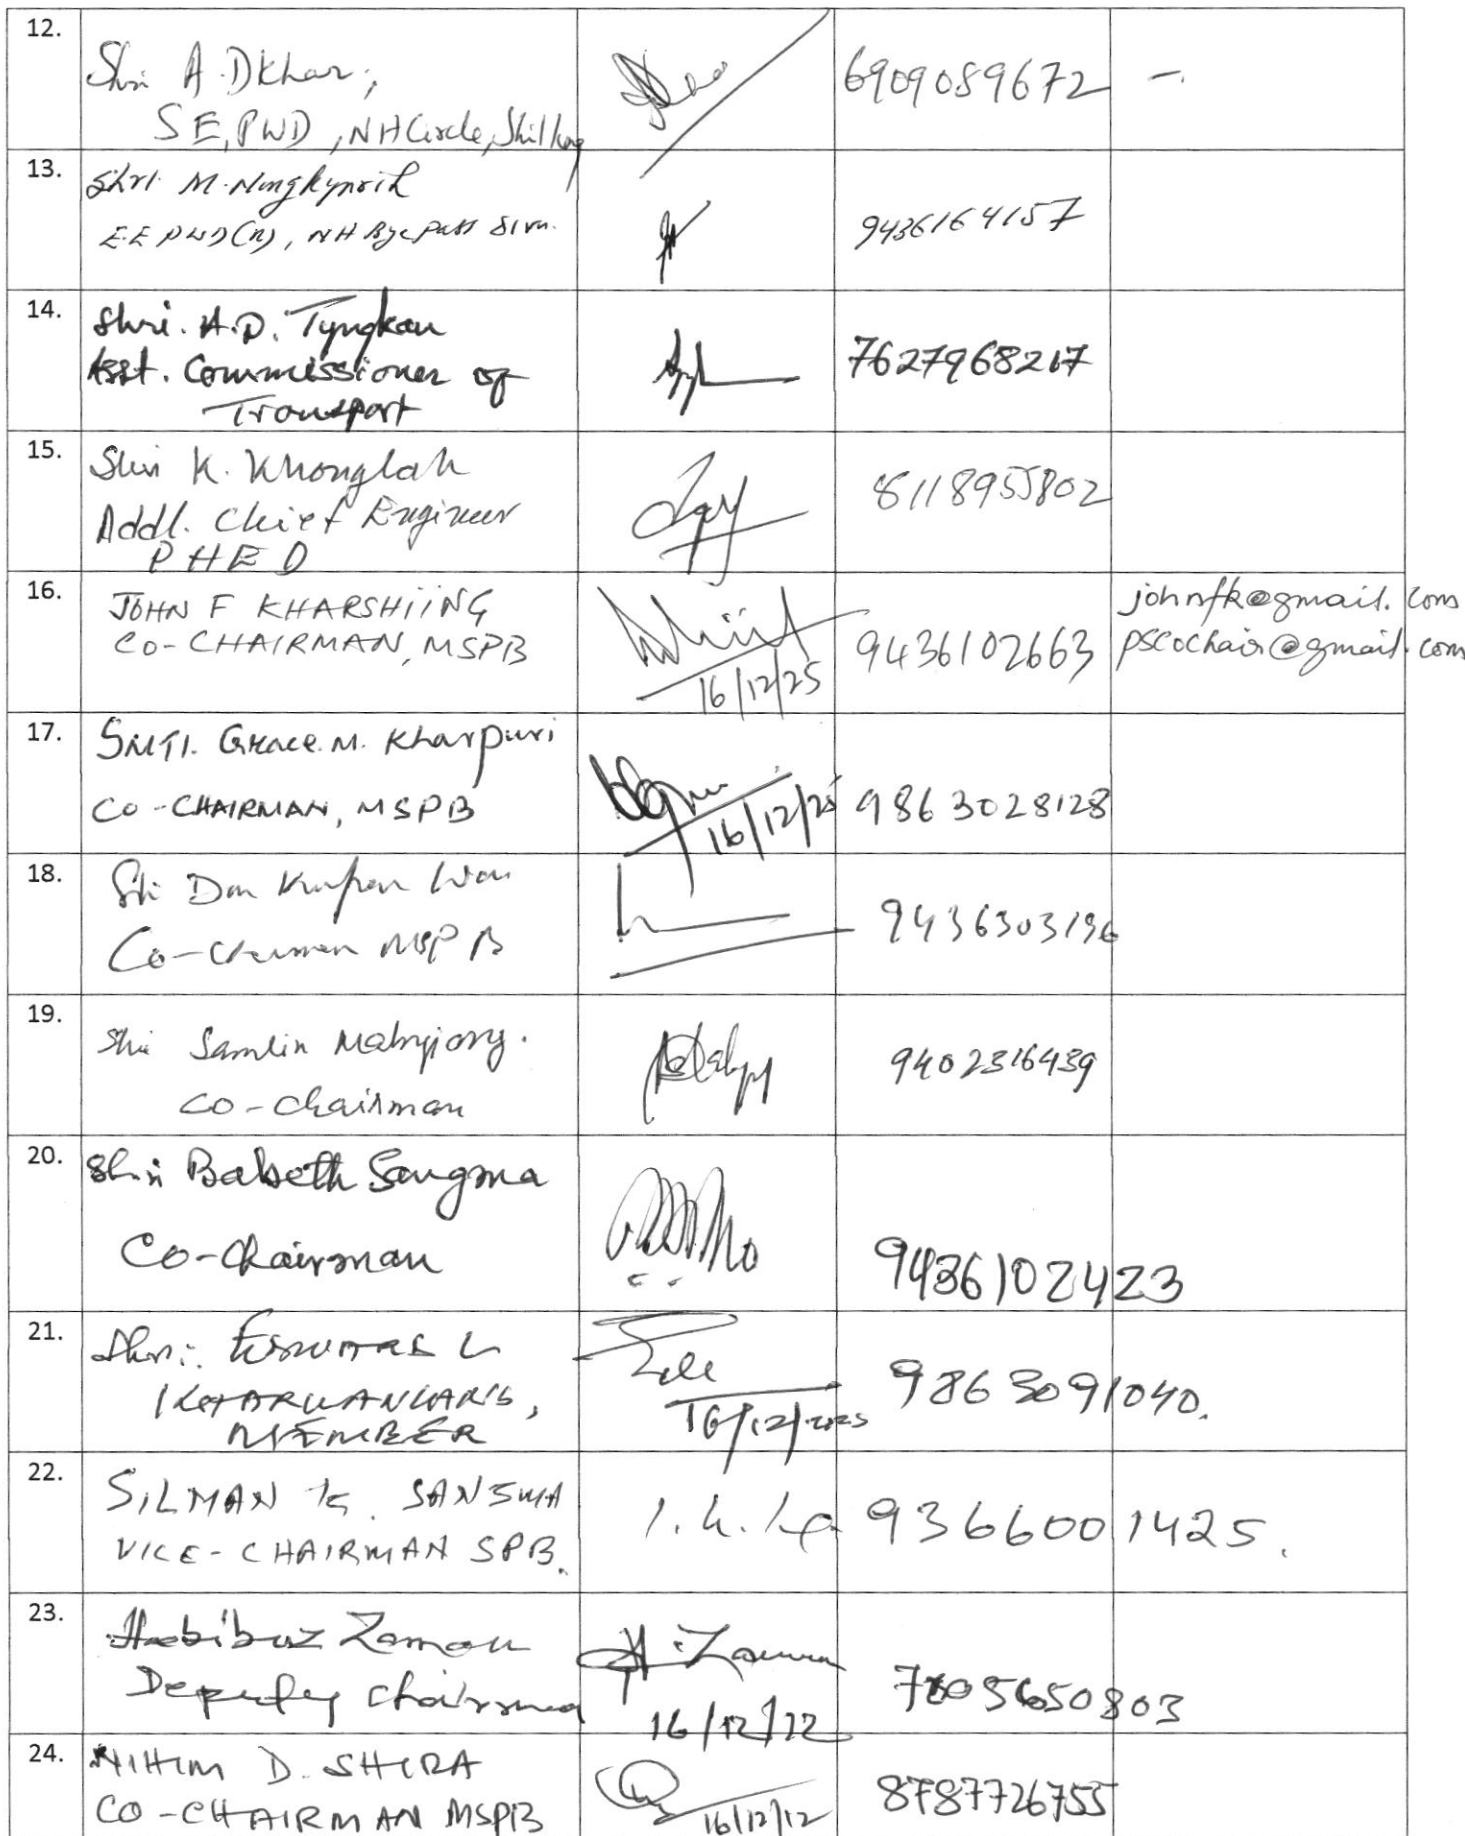 12.
Shri A. Dkhar,
SE, PWD, NH Circle, Shillong
6909089672 -.
13.
Shri. M. Nongkynrih
EE PWD(R), NH Bye Pass Divn.
9436164157
14.
Shri. A.D. Tyngkan
Asst. Commissioner of
Transport
7627968217
15.
Shri K. Khonglah
Addl. Chief Engineer
PHED
8118955802
16.
JOHN F KHARSHIING
CO-CHAIRMAN, MSPB
16/12/25
9436102663
johnfk@gmail.com
pscochair@gmail.com
17.
SMTI. Grace. M. Kharpuri
CO-CHAIRMAN, MSPB
16/12/25
9863028128
18.
Shri Don Kupar
Co-Chairman MSPB
9436303196
19.
Shri Samlin Malngiang.
Co-Chairman
9402316439
20.
Shri Babeth Sangma
Co-Chairman
9436102423
21.
Shri. L
KHARWANLANG,
MEMBER
16/12/2025
9863091040.
22.
SILMAN K. SANGMA
VICE-CHAIRMAN SPB.
9366001425.
23.
Habibuz Zaman
Deputy Chairman
H. Zaman
16/12/22
5650803
24.
NIHIM D. SHIRA
CO-CHAIRMAN MSPB
16/12/12
8787726755